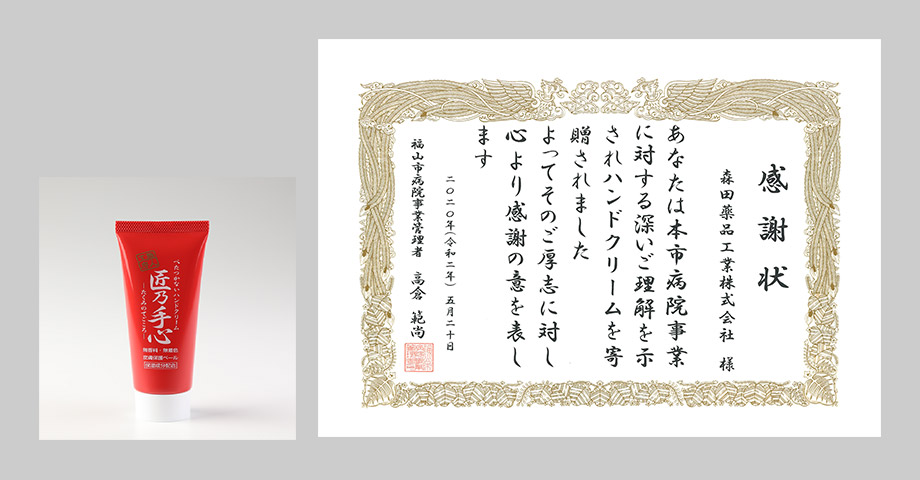 べたつかないハンドクリーム
匠乃手心
―たくみのてごころ―
無香料・無着色
皮膚保護ベール
感謝状
森田薬品工業株式会社 様
あなたは本市病院事業
に対する深いご理解を示
されハンドクリームを寄
贈されました
よってそのご厚志に対し
心より感謝の意を表し
ます
二〇二〇年(令和二年)五月二十日
福山市病院事業管理者 高倉範尚